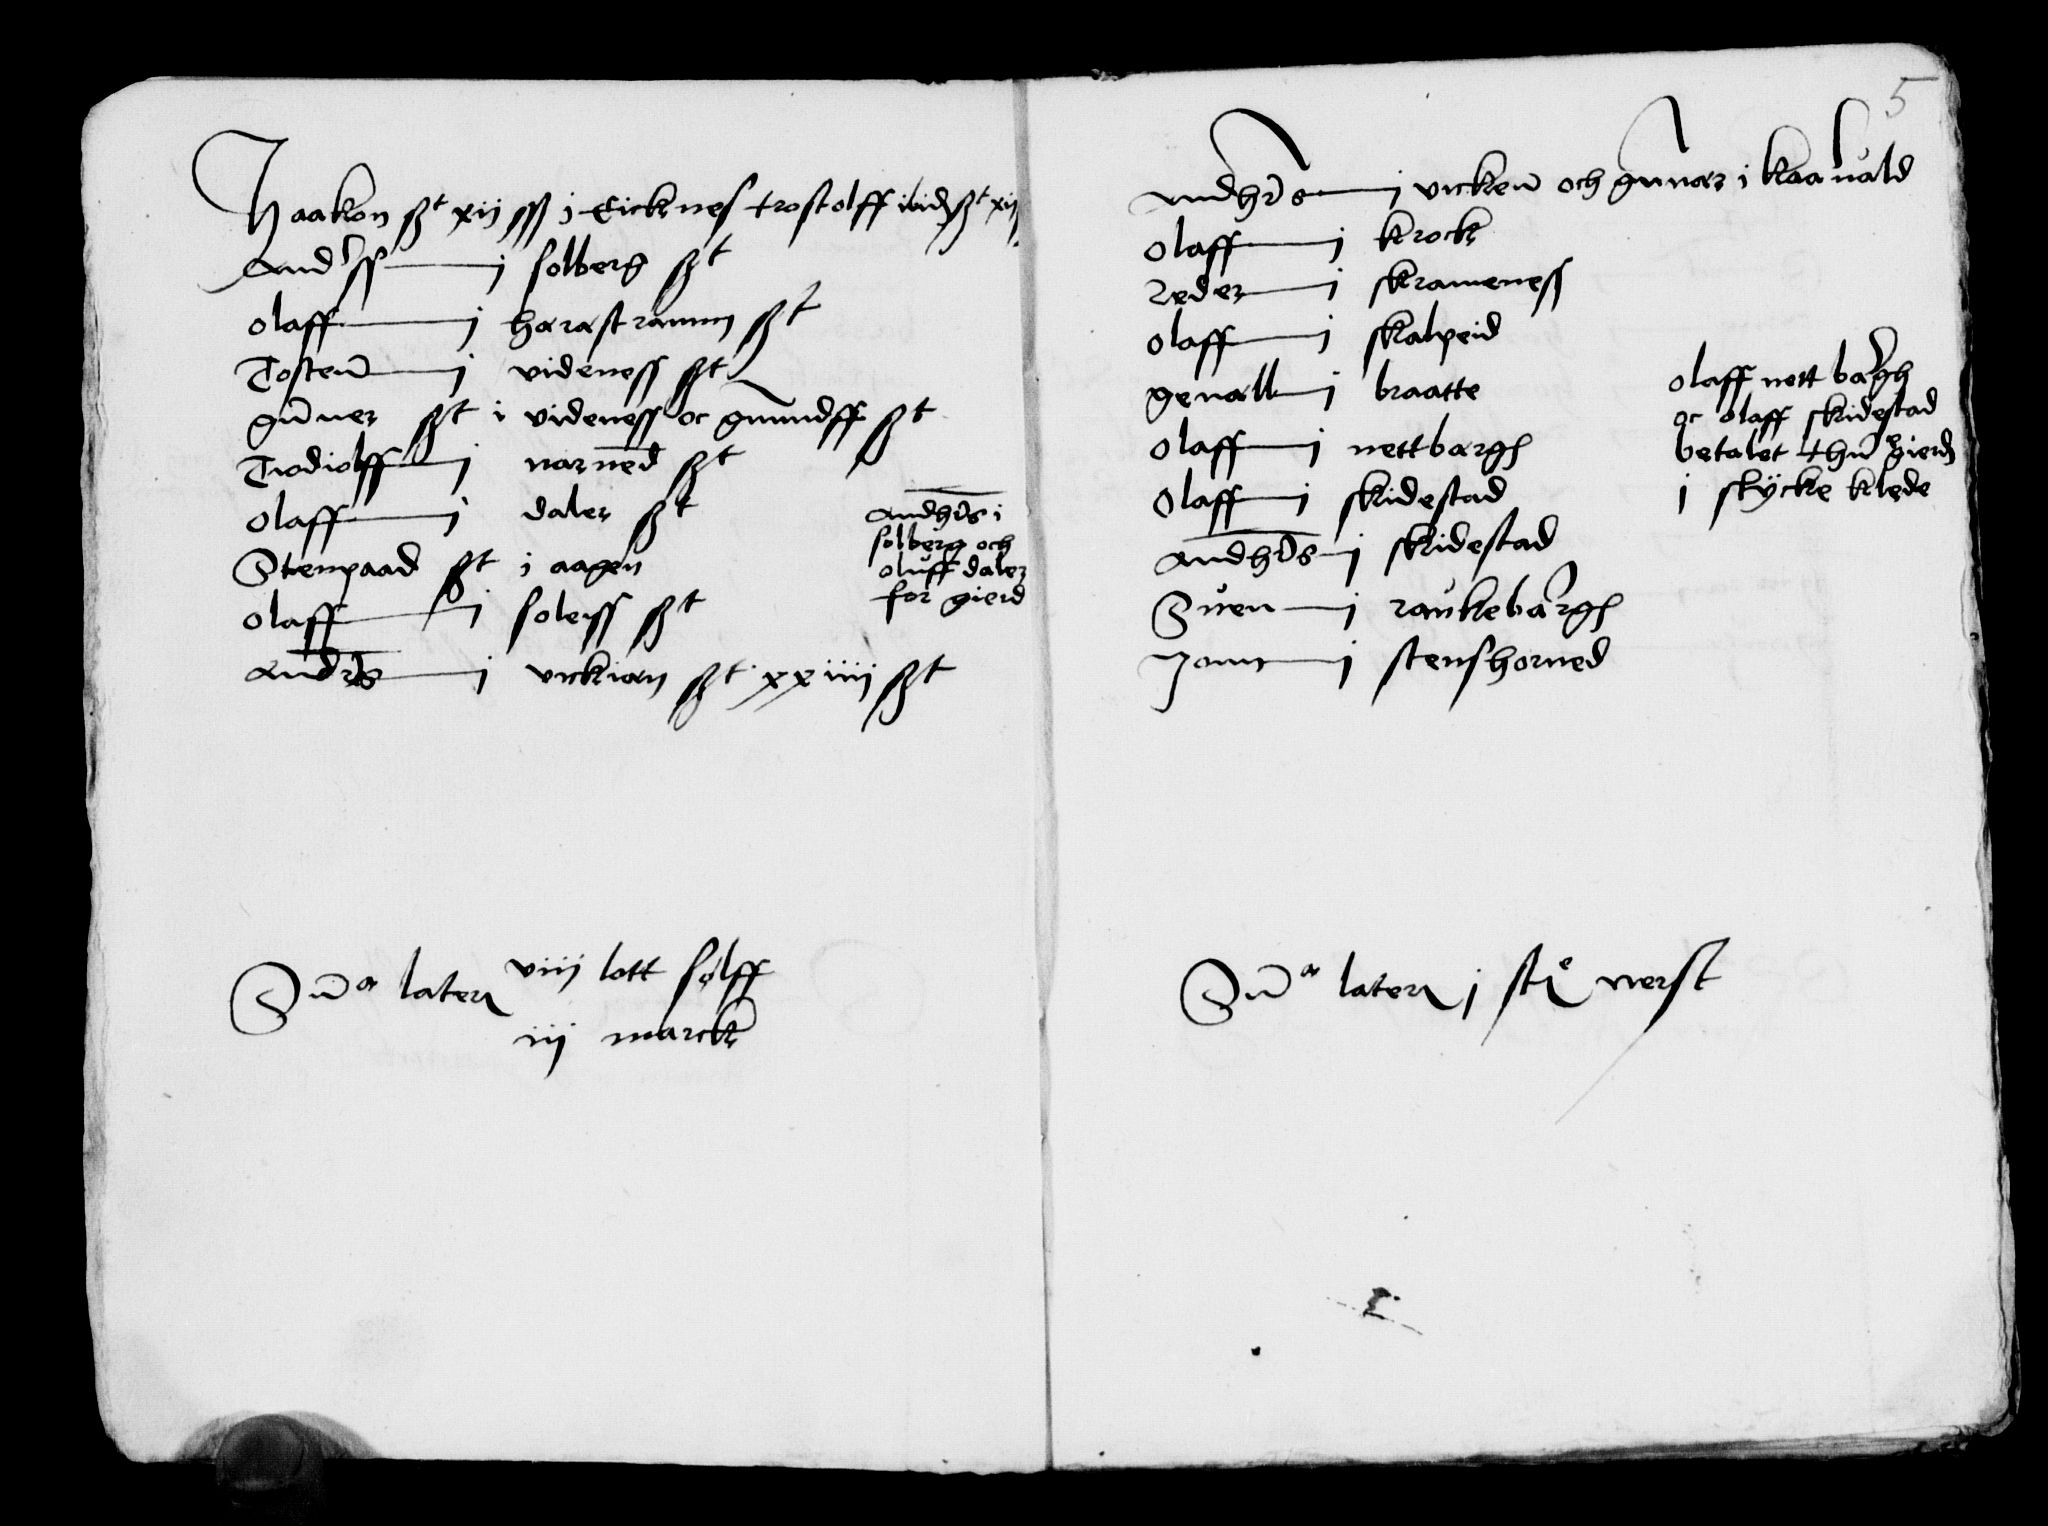 Haakon ßt xij sß j Eicknes trostolff ibid ßt xij
Andrss i solberg ßt
Olaff i harastramm ßt
Tosten i videness ßt
guner ßt i videness oc gmundff ßt
Tiodiolff i narned ßt
Olaff i daler ßt
Stenpaad ßt i aagen
Olaff i soleiss ßt
Andrs i vickian ßt xxiiii ßt
Andhrs i
solberg och
oluff daler
for gierd
Sūa lateris viiij lott sølff
iij marck
5
Andhrs i vicken och gunar i kaauald
Olaff i krock
Peder i skrameness
Olaff i skalpeid
genall i braatte
Olaff i nettbargh
Olaff i skidestad
Andhrs i skidestad
Suen i raukebargh
Jonn i stenshorned
olaff nett bargh
oc olaff skidestad
betalet thn gierd
j støcke klede
Sūa lateris j stk verst